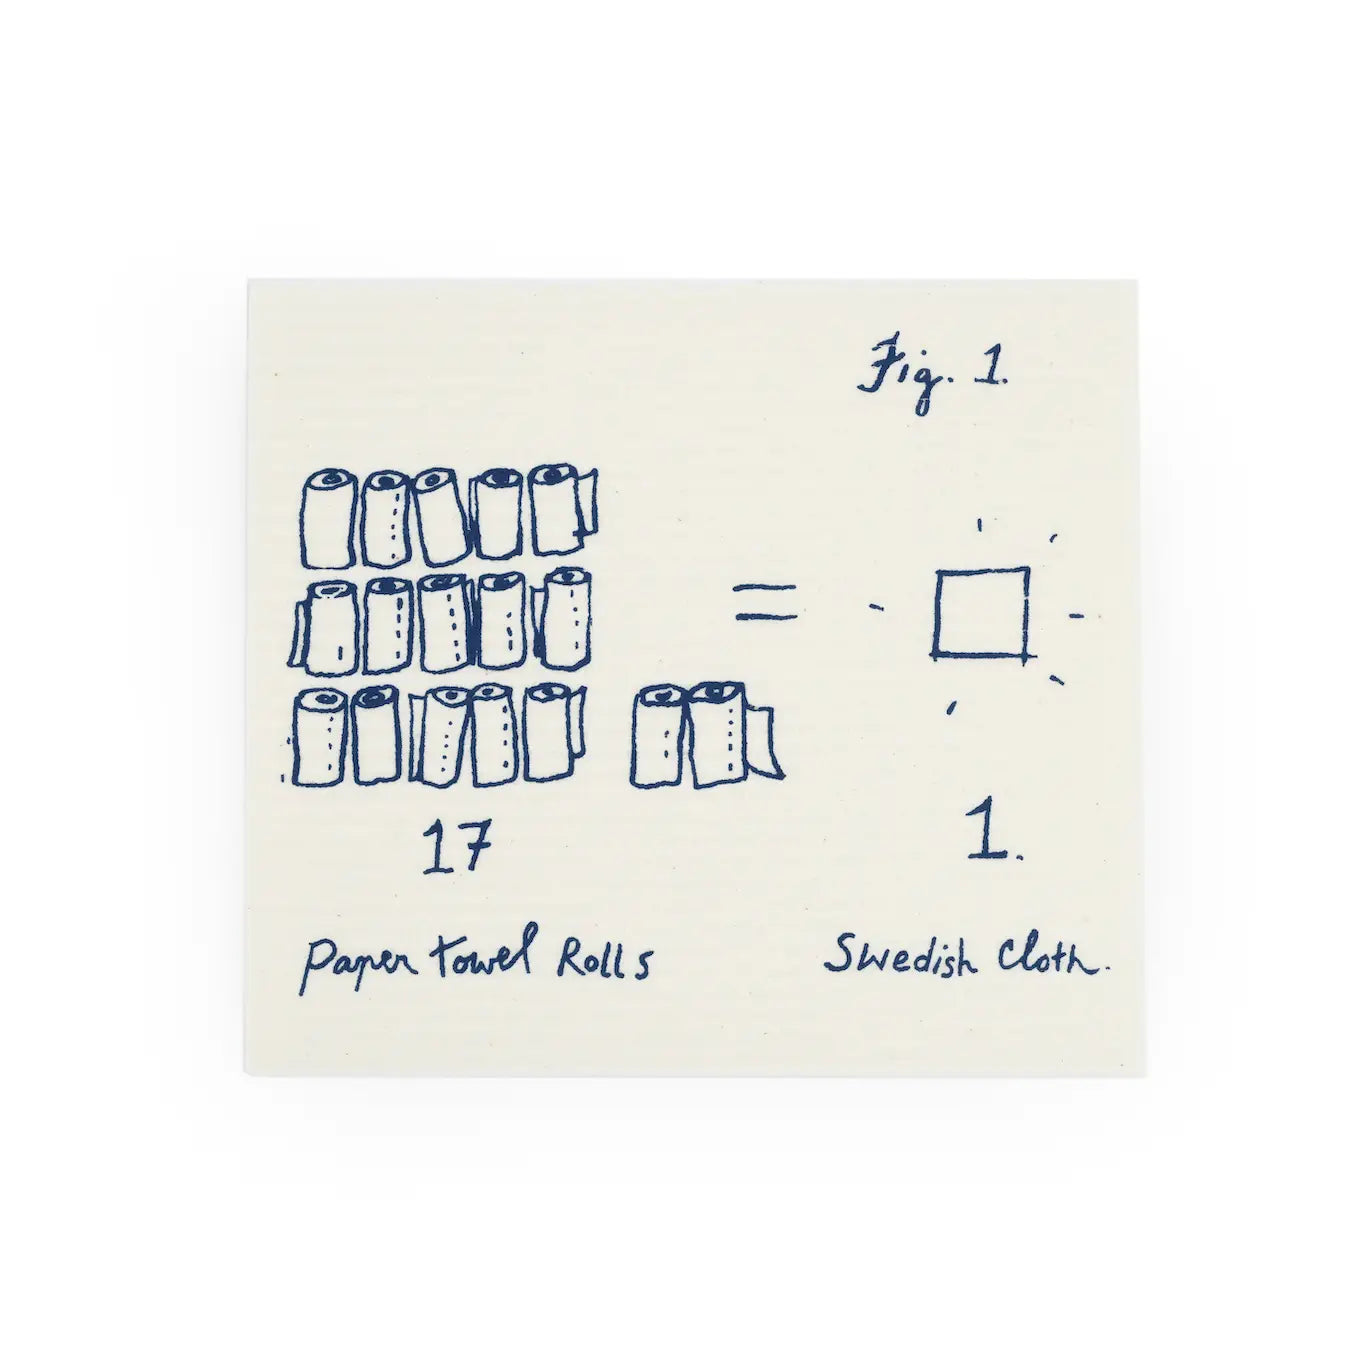 Fig. 1.
=
17
1.
Paper Towel Rolls
Swedish Cloth.